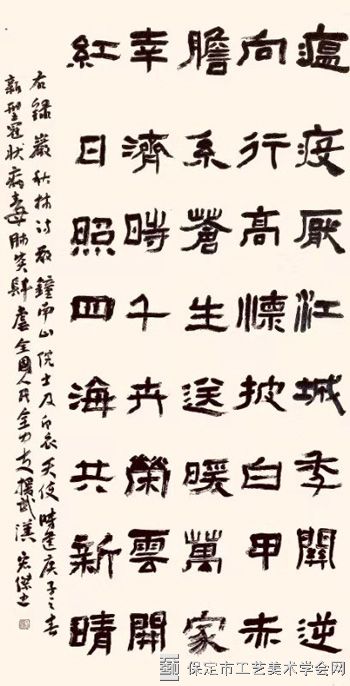 瘟疫厭江城季關逆
向行高懷披白甲赤
膽系蒼生送暖萬家
幸濟時千卉榮雲開
紅日照四海共新晴
右錄嚴秋林诗敬鐘南山院士及白衣天使時逢庚子之春
新型冠狀病毒肺炎肆虐全國人民全力支援武漢
保定市工艺美术学会网